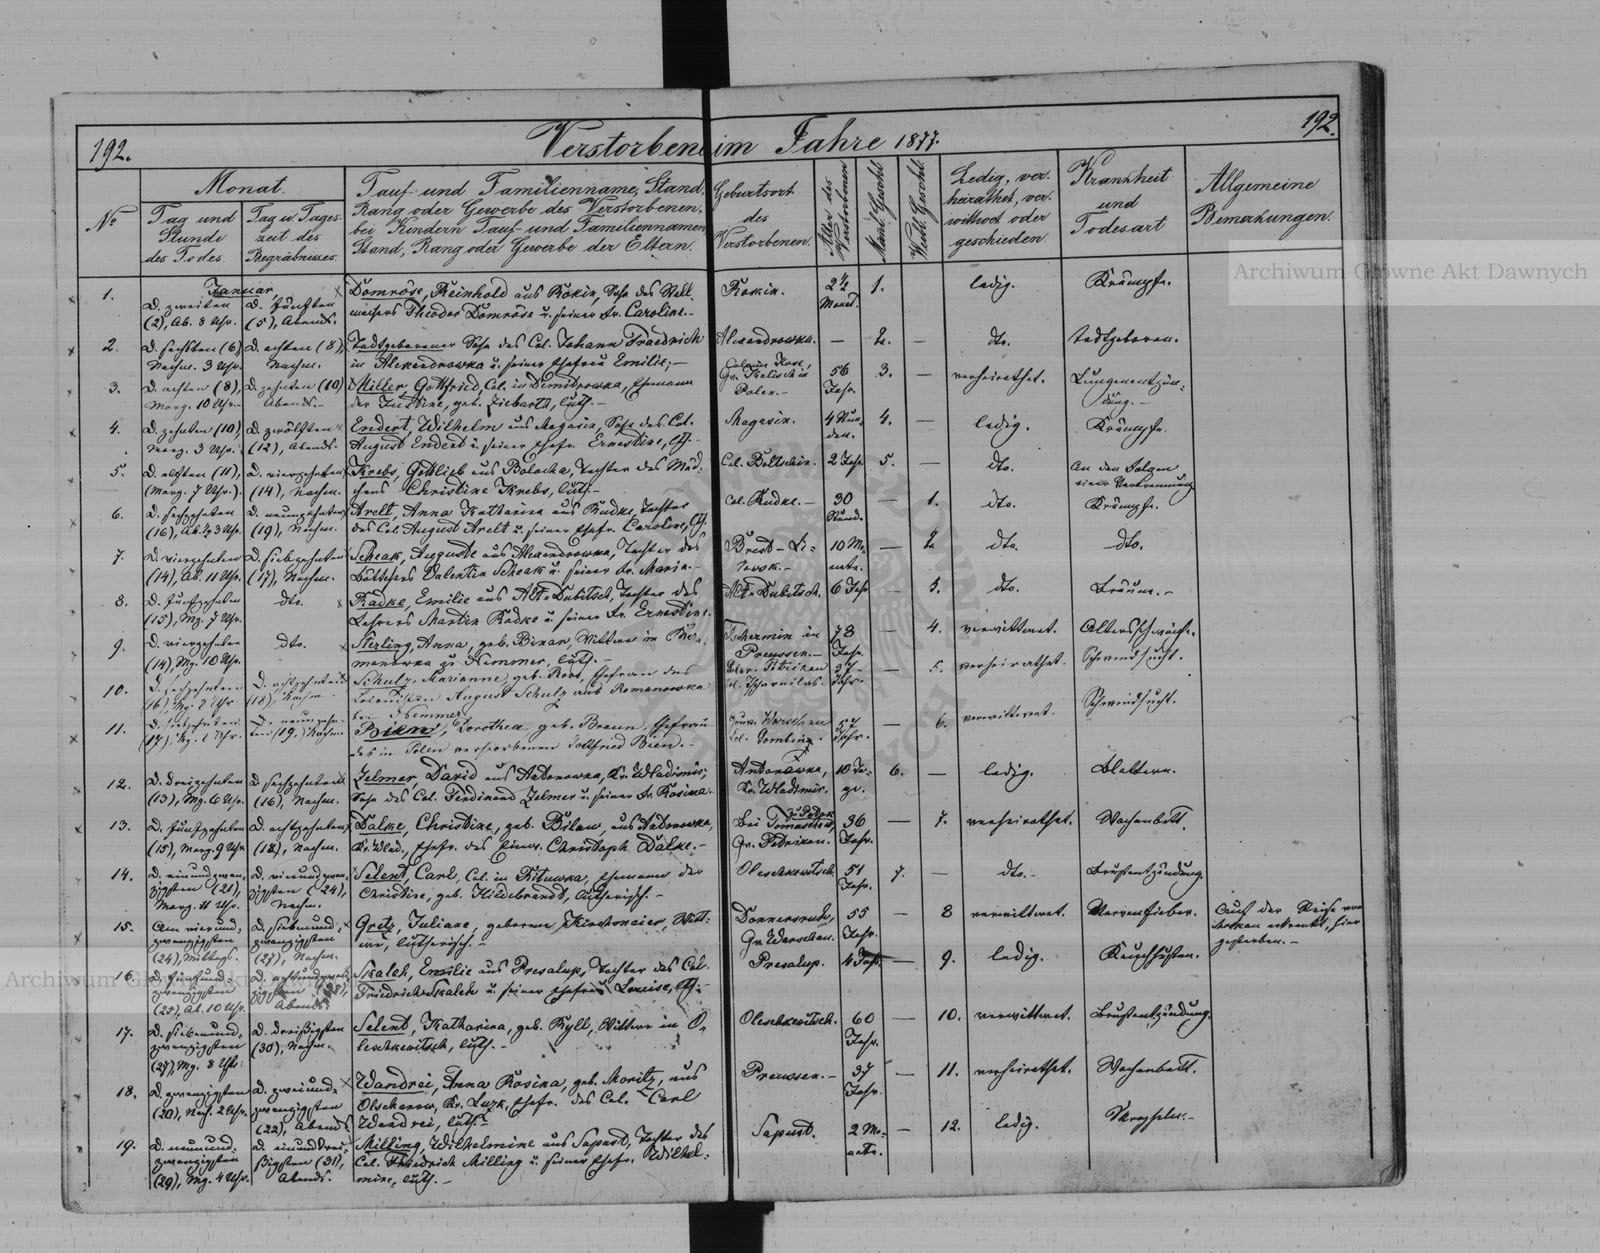 192.
Verstorbene im Jahre 1877.
192.
No
Monat.
Tag und
Stunde
des Todes.
Tag u. Tages-
zeit des
Begräbnisses.
Tauf und Familienname, Stand,
Rang oder Gewerbe des Verstorbenen,
bei Kindern Tauf und Familiennamen
Stand, Rang oder Gewerbe der Eltern.
Geburtsort
des
Verstorbenen.
Alter des
Verstorbenen
Männl. Geschl.
Weibl. Geschl.
Ledig, ver-
heirathet, ver-
wittwet oder
geschieden.
Krankheit
und
Todesart
Allgemeine
Bemerkungen.
Januar.
1.
D. zweiten
(2), Ab. 8 Uhr.
D. fünften
(5), Abends.
Domröse, Reinhold aus Rokin, Sohn des Stell-
machers Theodor Domröse u. seiner Fr. Caroline.-
2.
D. sechsten (6)
Nachm. 3 Uhr.
D. achten (8),
Nachm.
Todtgeborener Sohn des Col. Johann Fraedrich
in Alexandrowka u. seiner Ehefrau Emilie,-
Alexandrowka. — 2. — dto. todtgeboren.
3.
D. achten (8),
Morg. 10 Uhr.-
D. zehnten (10)
Abends.-
Miller, Gottfried, Col. in Dimitrowka, Ehemann
der Justine, geb. Ziebarth, luth.-
Polen.-
56
Jahr.
3. — verheirathet. Lungenentzün-
dung.-
4.
D. zehnten (10)
Morg. 3 Uhr.
D. zwölften
(12), Abends.
Endert, Wilhelm aus Magasin, Sohn des Col.
August Endert u. seiner Ehefr. Ernestine,
Magasin. 4 Stun-
den.
4. — ledig. Krämpfe.
5.
D. elften (11),
(Morg. 7 Uhr.).
D. vierzehnten
(14), Nachm.
Krebs, Gottlieb aus Bolocha, Tochter des Mäd-
chens Christine Krebs, luth.-
2 Jahr. 5. — dto. an den Folgen
einer Verbrennung
6.
D. sechzehnten
D. neunzehnten
(19), Nachm.
Arelt, Anna Katharina aus Rudke, Tochter
des Col. August Arelt u. seiner Ehefr. Caroline,
Col. Rudke.- 30
Stund.
— 1. dto. Krämpfe.
7.
D. vierzehnten
(14), Ab. 11 Uhr.
D. siebzehnten
(17), Nachm.
Scheak, Auguste aus Alexandrowka, Tochter des
Böttchers Valentin Scheak u. seiner Fr. Maria.-
Brest-Li-
towsk.-
10 Mo-
nate.
— 2. dto. dto.
8.
D. fünfzehnten
(15), Mg. 7 Uhr.
dto.
Radke, Emilie aus Alt-Dubitsch, Tochter des
Lehrers Martin Radke u. seiner Fr. Ernestine.
Alt-Dubitsch. 6 Jahr — 3. dto. Bräune.-
9.
D. vierzehnten
(14), Mg. 10 Uhr.
dto.
Sterling, Anna, geb. Binar, Wittwe in
zu Nimmer, luth.-
Tschermin in
Preussen.-
78
Jahr.
— 4. verwittwet. Altersschwäche.
10.
D. achtzehnten
(18), Nachm.
Schulz, Marianne, geb. Roos, Ehefrau des
Colonisten August Schulz aus Romanowka
bei Nimmer.
— 5. verheirathet. Schwindsucht.
11.
Bien, Dorothea geb. Braun, Ehefrau
des in Polen verstorbenen Gottfried Bien.-
57
Jahr.
— 6. verwittwet. Schwindsucht.
12.
D. dreizehnten
(13), Mg. 6 Uhr.
D. sechzehnten
(16), Nachm.
Zelmer, David aus Antonowka, Kr. Wladimir,
Sohn des Col. Ferdinand Zelmer u. seiner Fr. Rosina.
Antonowka,
Kr. Wladimir.
10 Ta-
ge.
6. — ledig. Blattern.
13.
D. fünfzehnten
(15), Morg. 9 Uhr
D. achtzehnten
(18), Nachm.
Dalke, Christine, geb. Bilaw, aus Antonowka,
Kr. Wlad., Ehefr. des Einw. Christoph Dalke.-
bei Tomaschow,
Gv. Petrikau.
36
Jahr.
— 7. verheirathet. Wochenbett.
14.
D. einundzwan-
zigsten (21),
Morg. 11 Uhr.
D. vierundzwan-
zigsten (24),
Nachm.
Selent, Carl, Col. in Pituwka, Ehemann der
Christine, geb. Hildebrandt, lutherisch.-
Oleschkewitsch. 51
Jahr.
7. — dto.- Brustentzündung.
15.
Am vierund-
zwanzigsten
(24), Mittags.
D. siebenund-
zwanzigsten
(27), Nachm.
Gretz, Juliane, geborene Kirschmaier, Witt-
we, lutherisch.-
Donnersruh,
Gv. Warschau.
55
Jahr.
— 8 verwittwet. Nervenfieber. Auf der Reise von
erkrankt, hier
gestorben.-
16.
D. fünfund-
zwanzigsten
(25), Ab. 10 Uhr.
D. achtundzwan-
zigsten (28),
Abends.
Skaleh, Emilie aus Presalup, Tochter des Col.
Friedrich Skaleh u. seiner Ehefrau Louise,
Presalup. 4 Jahr — 9. ledig. Keuchhusten.
17.
D. siebenund-
zwanzigsten
(27), Mg. 8 Uhr.
D. dreißigsten
(30), Nachm.
Selent, Katharina, geb. Kyll, Wittwe in O-
leschkewitsch, luth.-
Oleschkewitsch. 60
Jahr.
— 10. verwittwet. Brustentzündung.
18.
D. zwanzigsten
(20), Nach. 2 Uhr.
D. zweiund-
zwanzigsten
(22), Abends
Wandrei, Anna Rosina, geb. Moritz, aus
Olschanow, Kr. Luzk, Ehefr. des Col. Carl
Wandrei, luth.-
Preussen.- 37
Jahr.
— 11. verheirathet. Wochenbett.
19.
D. neunund-
zwanzigsten
(29), Mg. 4 Uhr.
D. einunddrei-
ßigsten (31),
Abends.
Milling, Wilhelmine aus Sapust, Tochter des
Col. Friedrich Milling u. seiner Ehefr. Wilhel-
mine, luth.-
Sapust. 2 Mo-
nate.
— 12. ledig. Skropheln.-
Archiwum Główne Akt Dawnych